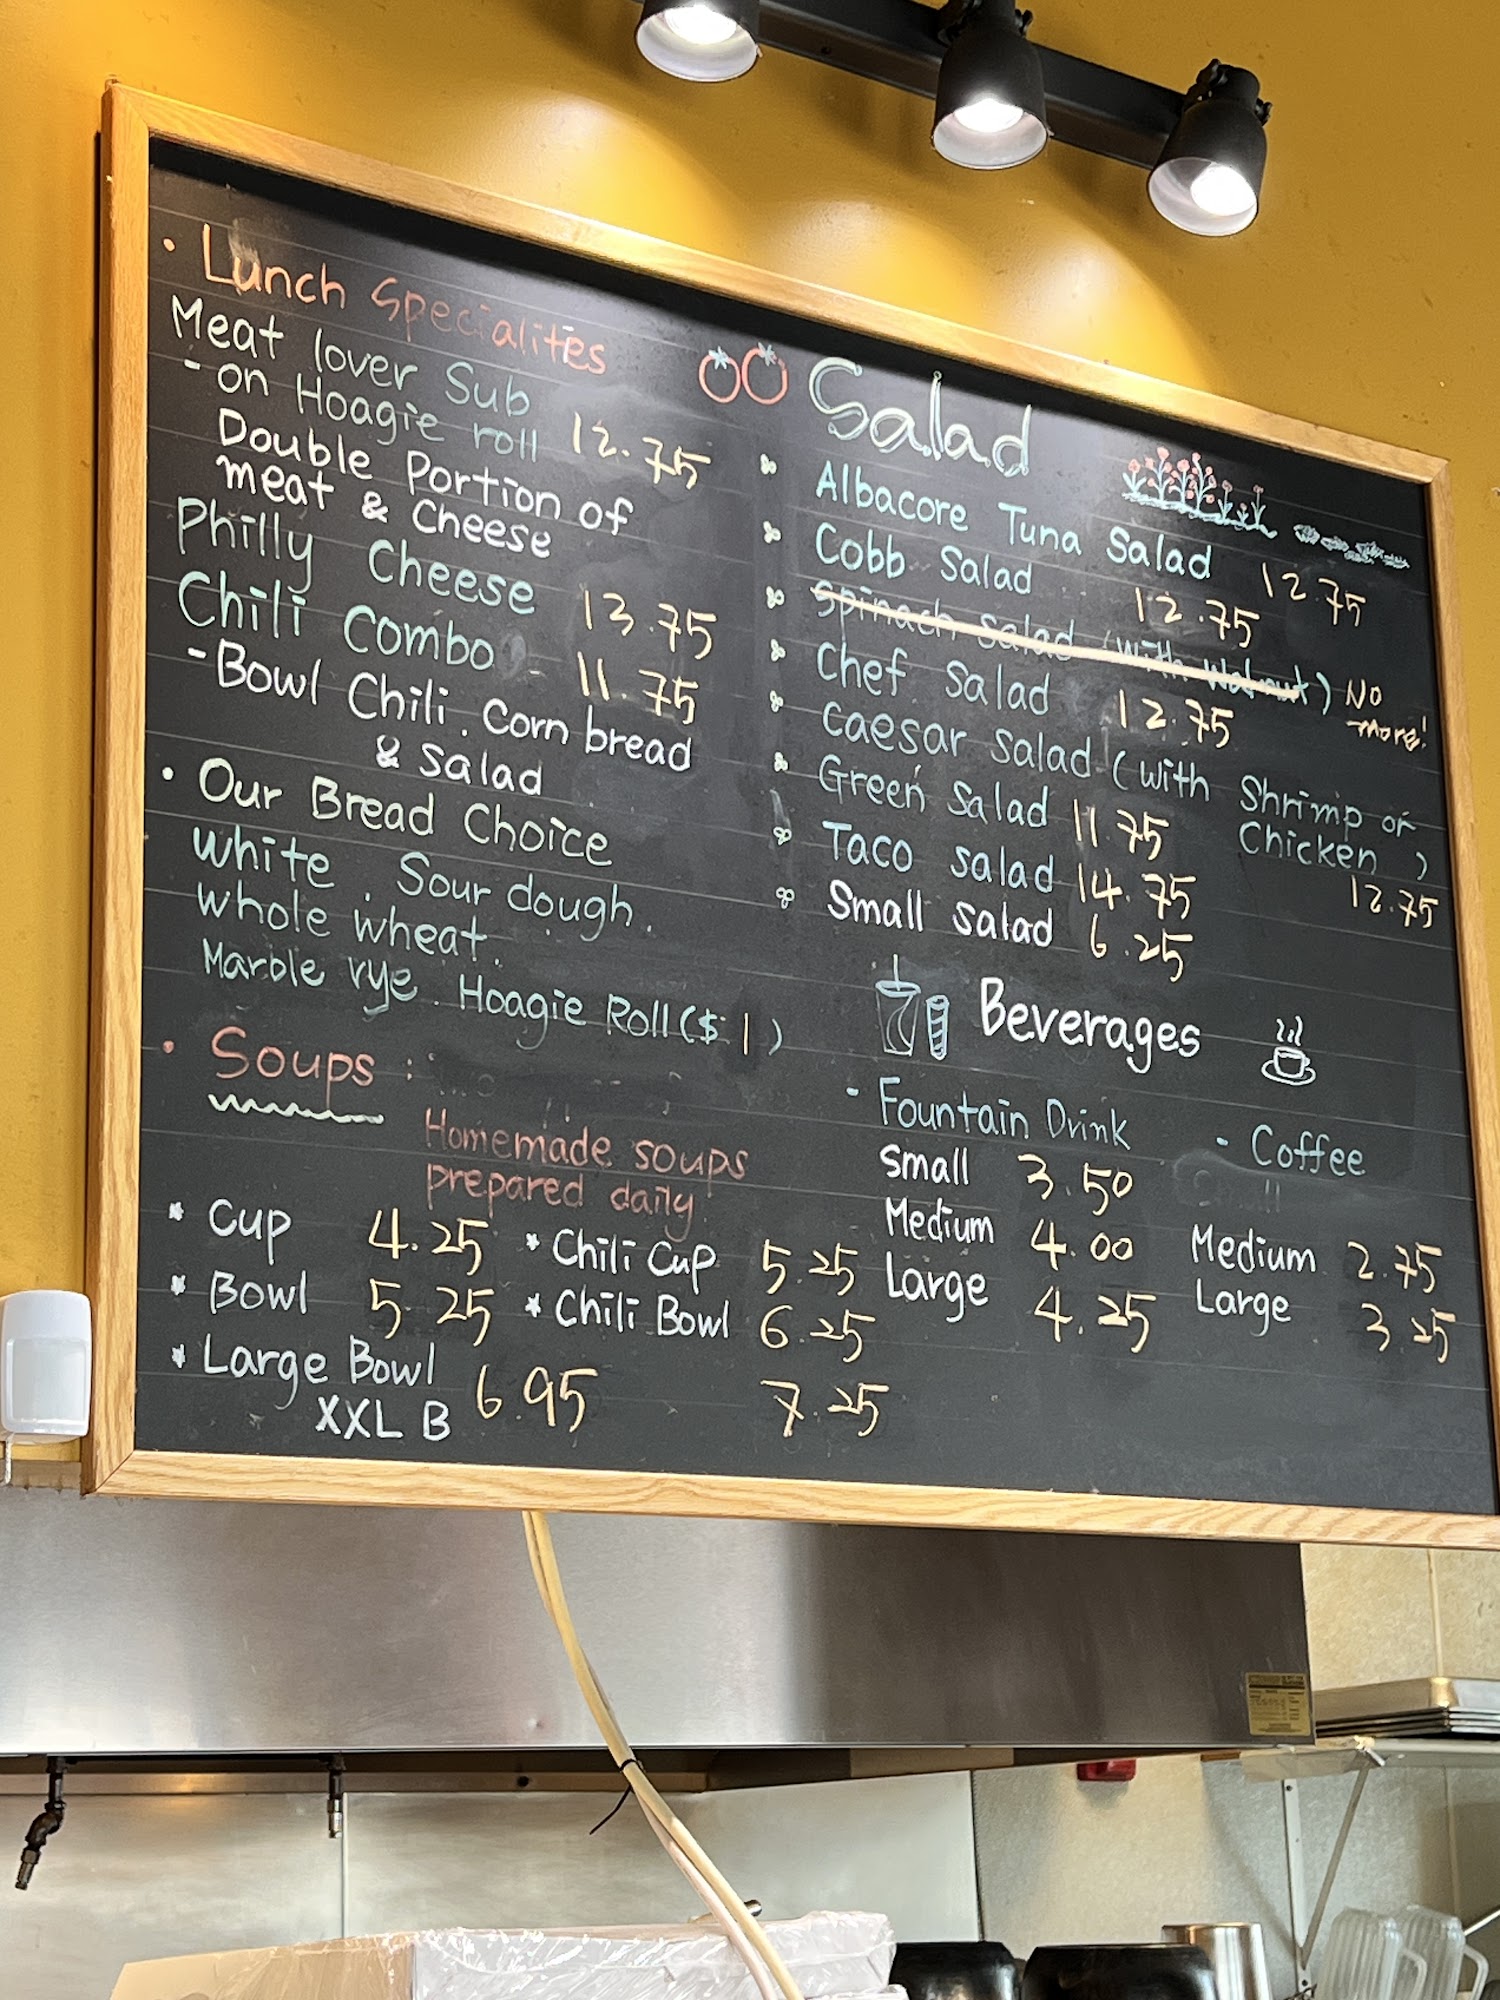 • Lunch Specialites
Meat lover Sub
- on Hoagie roll 12.75
Double Portion of
meat & Cheese
Philly Cheese 13.75
Chili Combo 11.75
- Bowl Chili. Corn bread
& Salad
• Our Bread Choice
white. Sour dough.
whole wheat.
Marble rye. Hoagie Roll ($1)
• Soups :
Homemade soups
prepared daily
* Cup 4.25
* Bowl 5.25
* Large Bowl 6.95
XXL B
* Chili Cup 5.25
* Chili Bowl 6.25
7.25
Salad
Albacore Tuna Salad 12.75
Cobb Salad 12.75
Spinach Salad (with Walnut) No
more!
Chef Salad 12.75
Caesar Salad (with Shrimp or
Chicken) 12.75
Green Salad 11.75
Taco Salad 14.75
Small Salad 6.25
Beverages
- Fountain Drink
Small 3.50
Medium 4.00
Large 4.25
- Coffee
Medium 2.75
Large 3.25